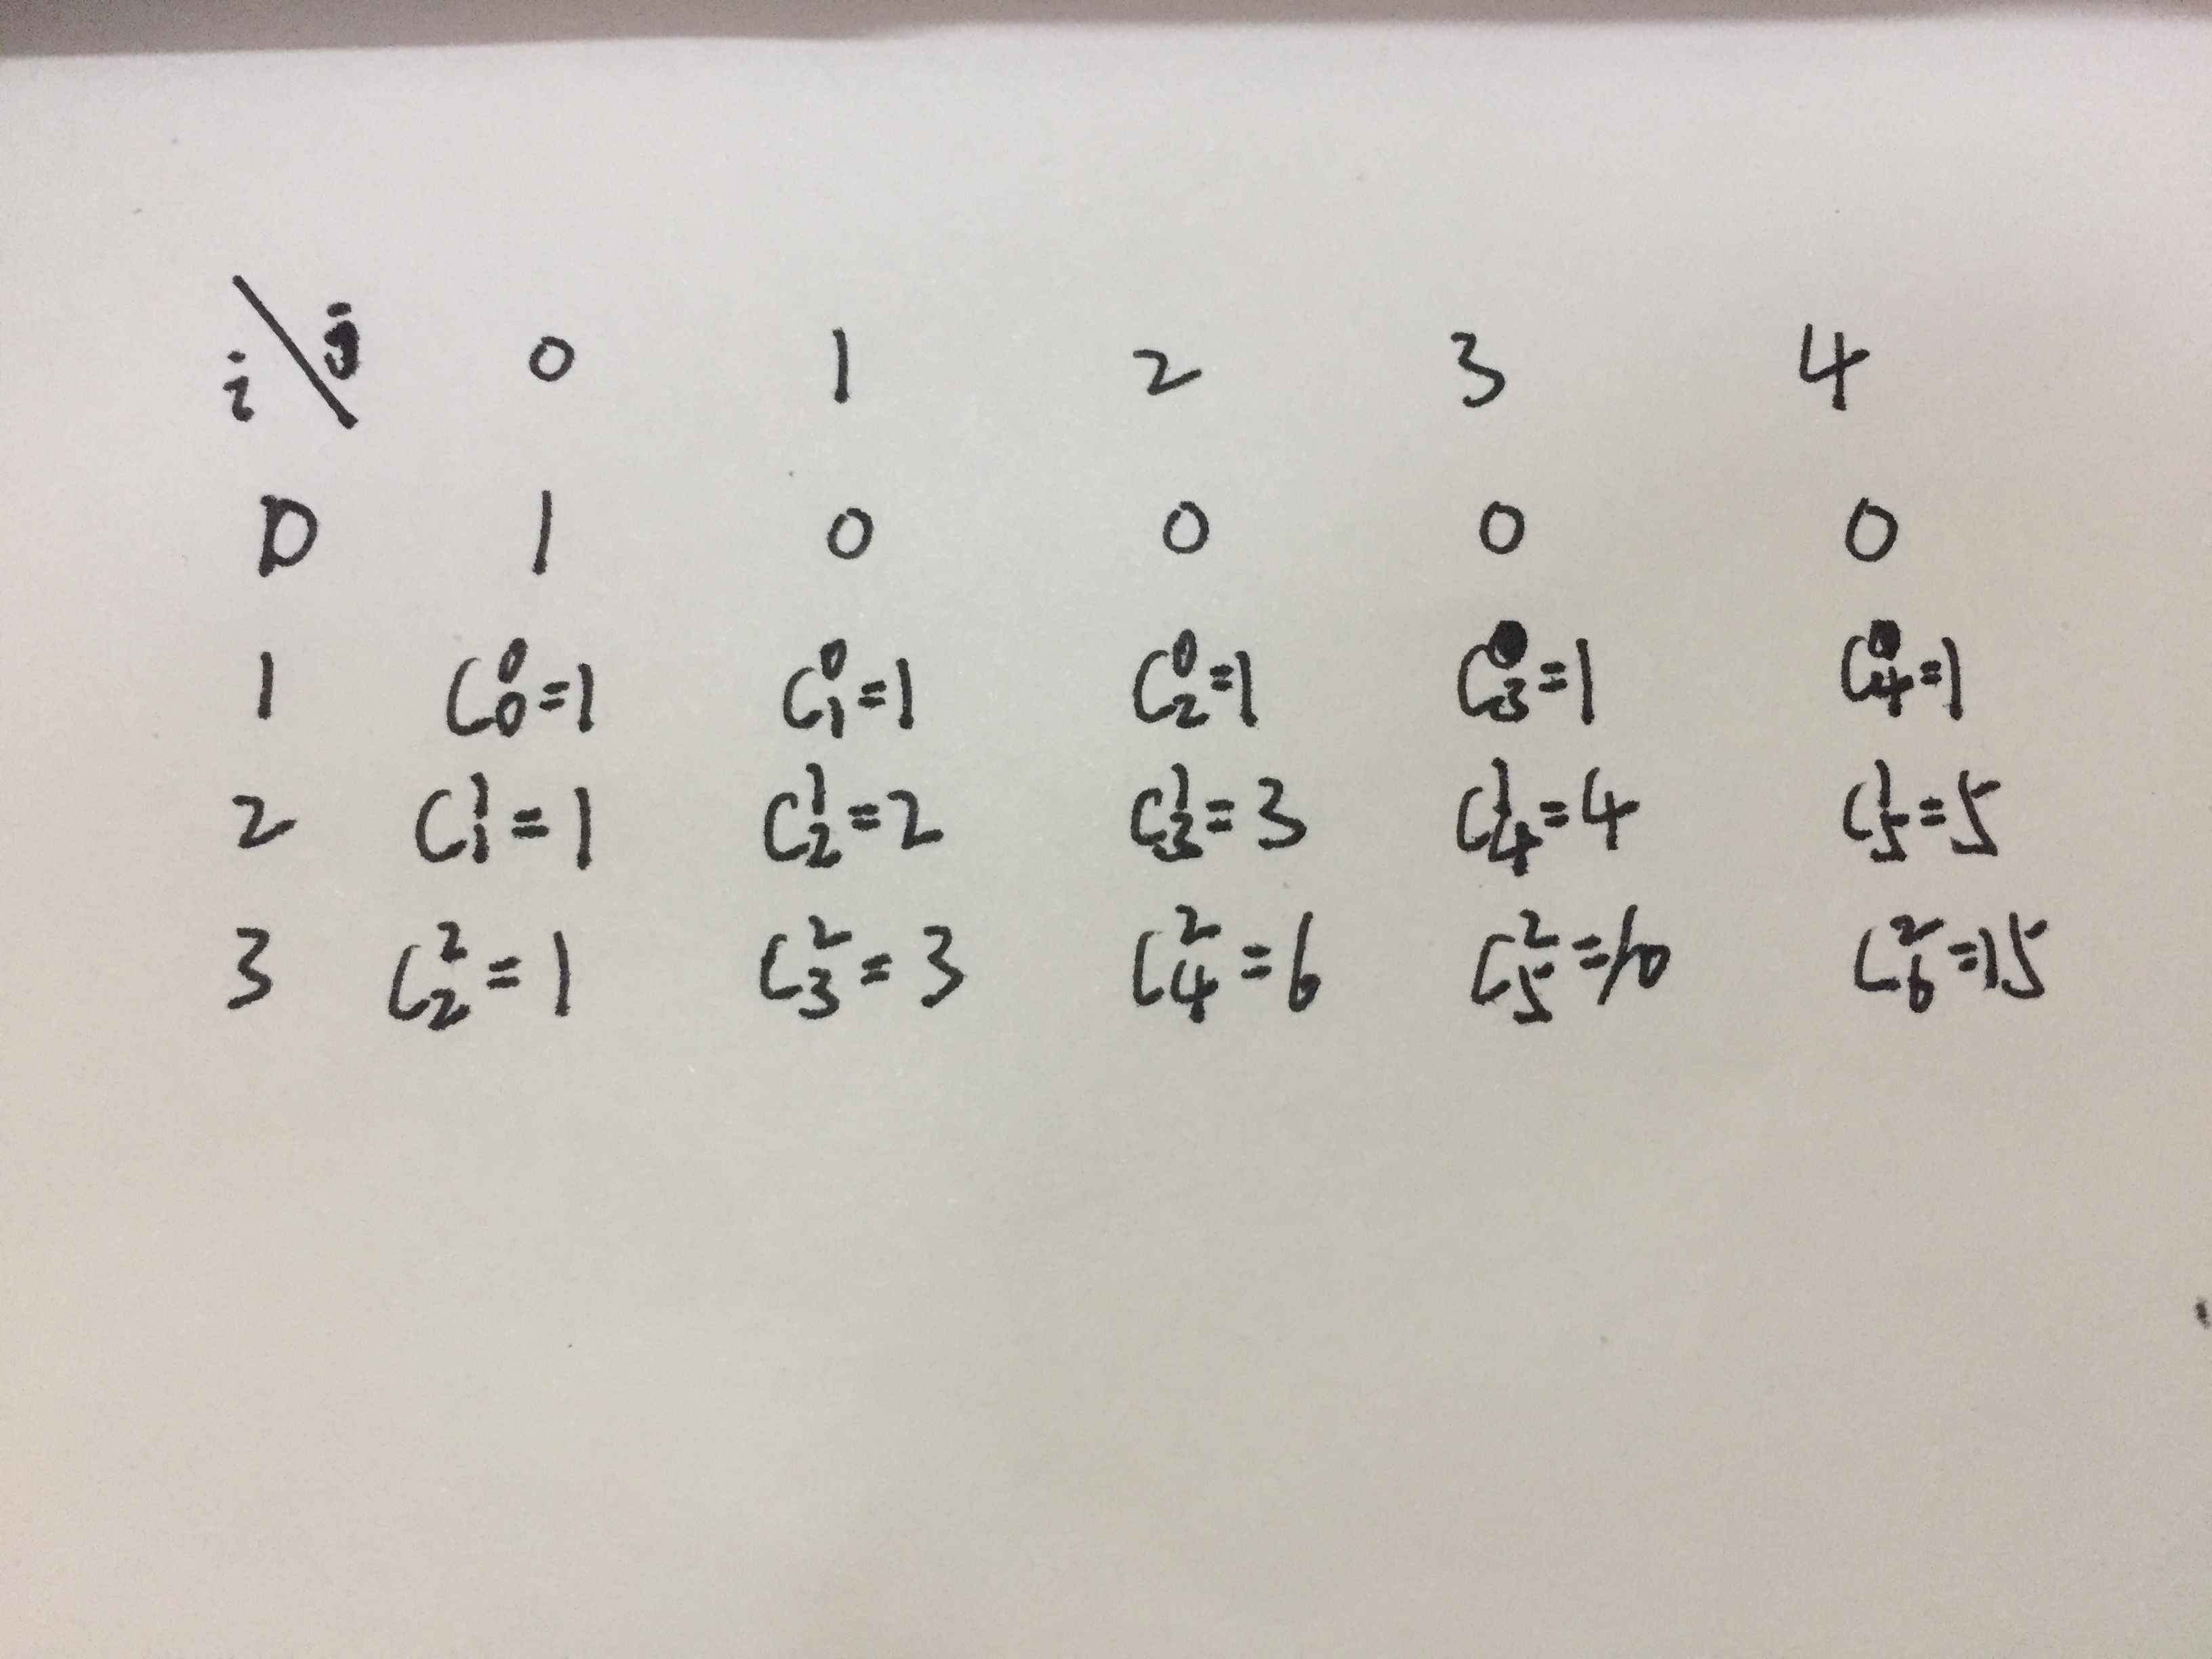 i \ j 0 1 2 3 4
0 1 0 0 0 0
1 C₀⁰=1 C₁⁰=1 C₂⁰=1 C₃⁰=1 C₄⁰=1
2 C₁¹=1 C₂¹=2 C₃¹=3 C₄¹=4 C₅¹=5
3 C₂²=1 C₃²=3 C₄²=6 C₅²=10 C₆²=15